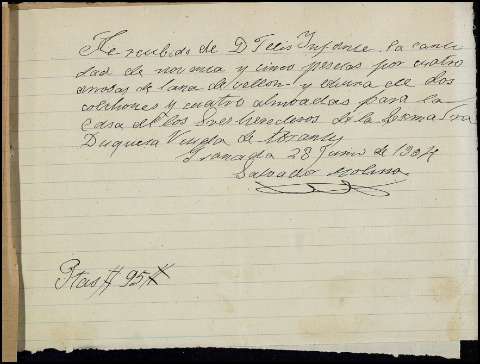 He recibido de D. Felis Infante. la canti
dad de noventa y cinco pesetas por cuatro
arrobas de lana de vellon y echura de dos
colchones y cuatro almoadas para la
Casa de los Sres herederos de la Exma Sra
Duquesa Viuda de Abrantes
Granada 28 Junio de 1904
Salvador Molina
Ptas # 95 #